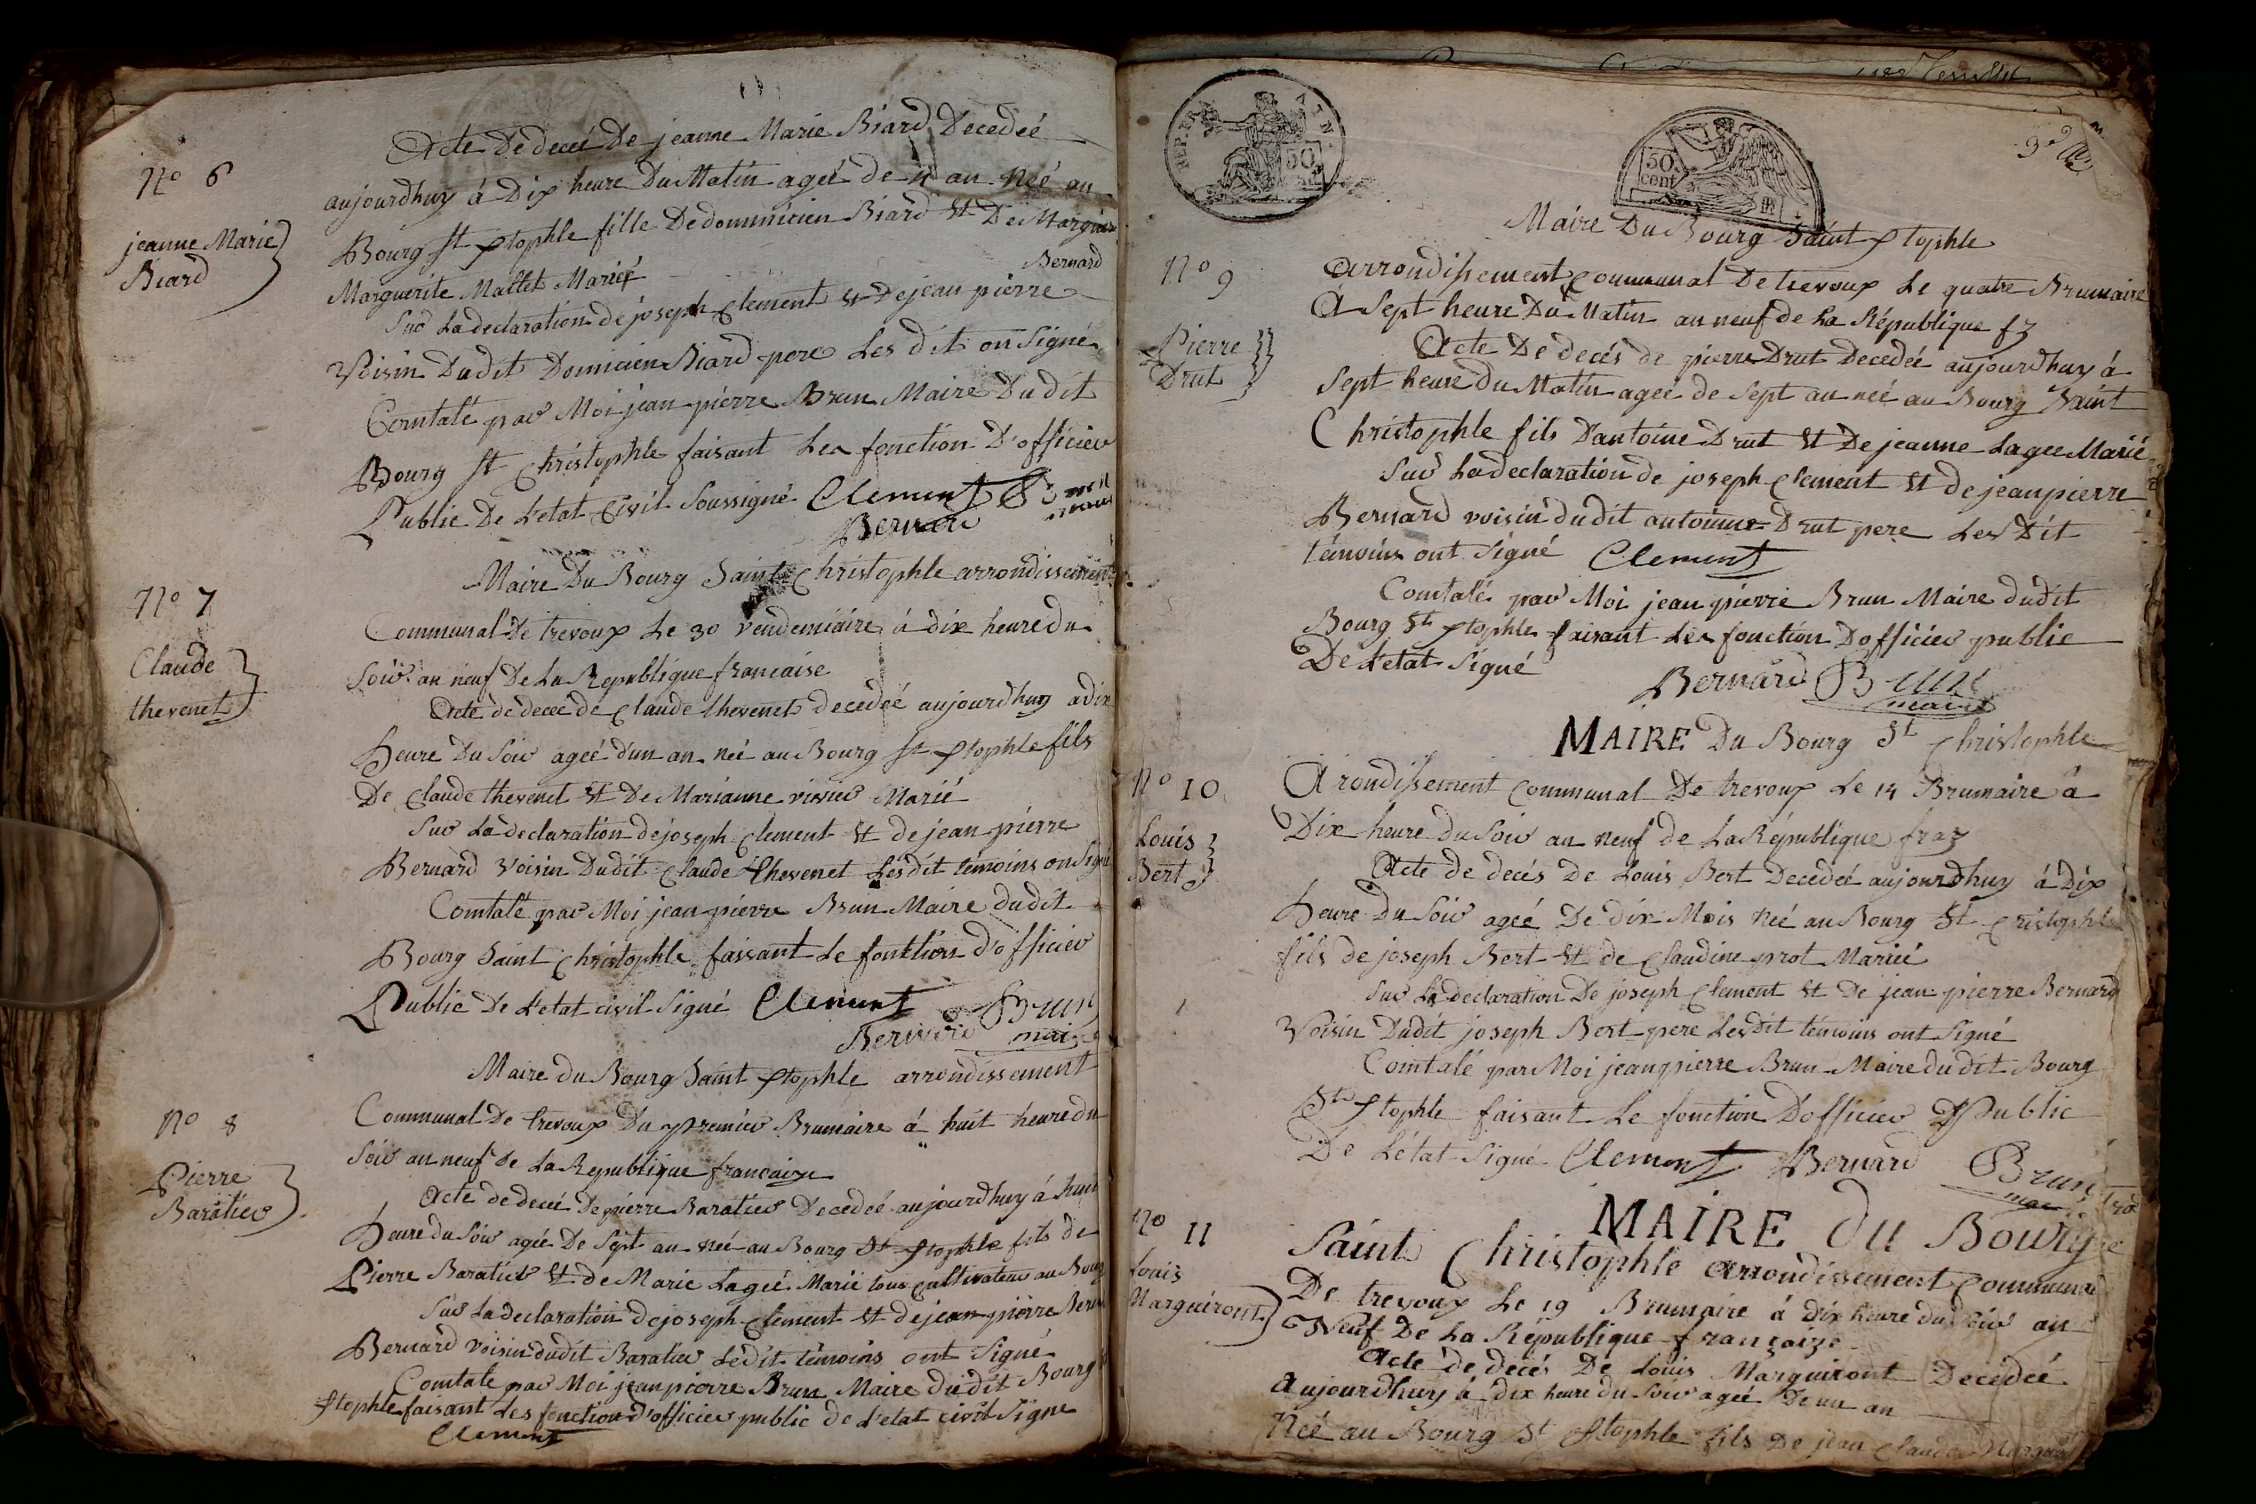 N° 6
jeanne Marie
Biard
Acte De decé De jeanne Marie Biard Decedeé
aujourdhuy á Dix heure Du Matin ageé de an Neé au
Bourg St ptophle fille De dominicien Biard Et De Margueri
Marguerite Mallet Marieé
Bernard
Sur La declaration de joseph Clement Et De jean pierre
Voisin Dudit Domicien Biard pere Les dit on Signé
Comtalé par Moi jean pierre Brun Maire Dudit
Bourg St Christophle faisant Les fonction D'officier
Public De L'etat Civil Soussigné Clement
Bernard
N° 7
Claude
thevenet
Maire Du Bourg Saint Christophle arrondissement
Communal De trevoux Le 30 vendemiaire á dix heure du
Soir an neuf De La Republique francaise
Acte de decé de Claude thevenet decedeé aujourdhuy a dix
heure Du Soir ageé d'un an neé au Bourg St ptophle fils
De Claude thevenet Et De Marianne Marié
Sur La declaration de joseph Clement Et de jean pierre
Bernard Voisin Dudit Claude thevenet Les dit témoins on Signé
Comtalé par Moi jean pierre Brun Maire dudit
Bourg Saint Christophle faissant Le fonktion d'officier
Public De L'etat civil Signé Clement Brun
Bernard maire
N° 8
Pierre
Baratier
Maire du Bourg Saint ptophle arrondissement
Communal De trevoux Du premier Brumaire á huit heure du
Soir an neuf De La Republique francaize
Acte de decé De pierre Baratier Decedeé aujourdhuy á huit
heure du Soir ageé De Sept an neé au Bourg St ptophle fils de
Pierre Baratier Et de Marie Lageé Marié tous Cultivateur au Bourg
Sur La declaration de joseph Clement Et de jean pierre Bern
Bernard voisin dudit Baratier Ledit témoins ont Signé
Comtale par Moi jean pierre Brun Maire dudit Bourg
ptophle faisant Les fonction d'officier public de L'etat civil Signe
Clement
REP. FRA ATN.
50
50
cent
Maire Du Bourg Saint ptophle
N° 9
Pierre
Drut
Arrondissement Communal De trevoux Le quatre Brumaire
A Sept heure Du Matin an neuf de La République fz
Acte De decés de pierre Drut Decedeé aujourdhuy á
Sept heure du Matin ageé de Sept an neé au Bourg Saint
Christophle fils Dantoine Drut Et De jeanne Lagee Marié
Sur La declaration de joseph Clement Et de jean pierre
Bernard voisin dudit antoinne Drut pere Les Dit
témoins ont Signé Clement
Comtalé par Moi jean pierre Brun Maire dudit
Bourg St ptophle faisant Les fonction D'officier public
De L'etat Signé
Bernard Brun
maire
N° 10
Louis
Bert
MAIRE Du Bourg St Christophle
Arondissement Communal De trevoux Le 14 Brumaire á
Dix heure du Soir an neuf de La République fraz
Acte de decés De Louis Bert Decedeé aujourdhuy á Dix
heure Du Soir ageé De dix Mois Neé au Bourg St Cristophle
fils de joseph Bert Et de Claudine prot Marieé
Sur La declaration De joseph Clement Et De jean pierre Bernard
Voisin Dudit joseph Bert pere Les dit témoins ont Signé
Comtalé par Moi jean pierre Brun Maire dudit Bourg
St ptophle faisant Le fonction D'officier Public
De L'état Signé Clement Bernard Brun
N° 11
Louis
Marguiront
MAIRE du Bourg
Saint Christophle arrondissement Communal
De trevoux Le 19 Brumaire á dix heure du Soir an
Neuf De La République françaize
Acte de decés De Louis Marguiront Decedeé
Aujourdhuy á dix heure du Soir ageé De un an
Neé au Bourg St ptophle fils De jean Claude